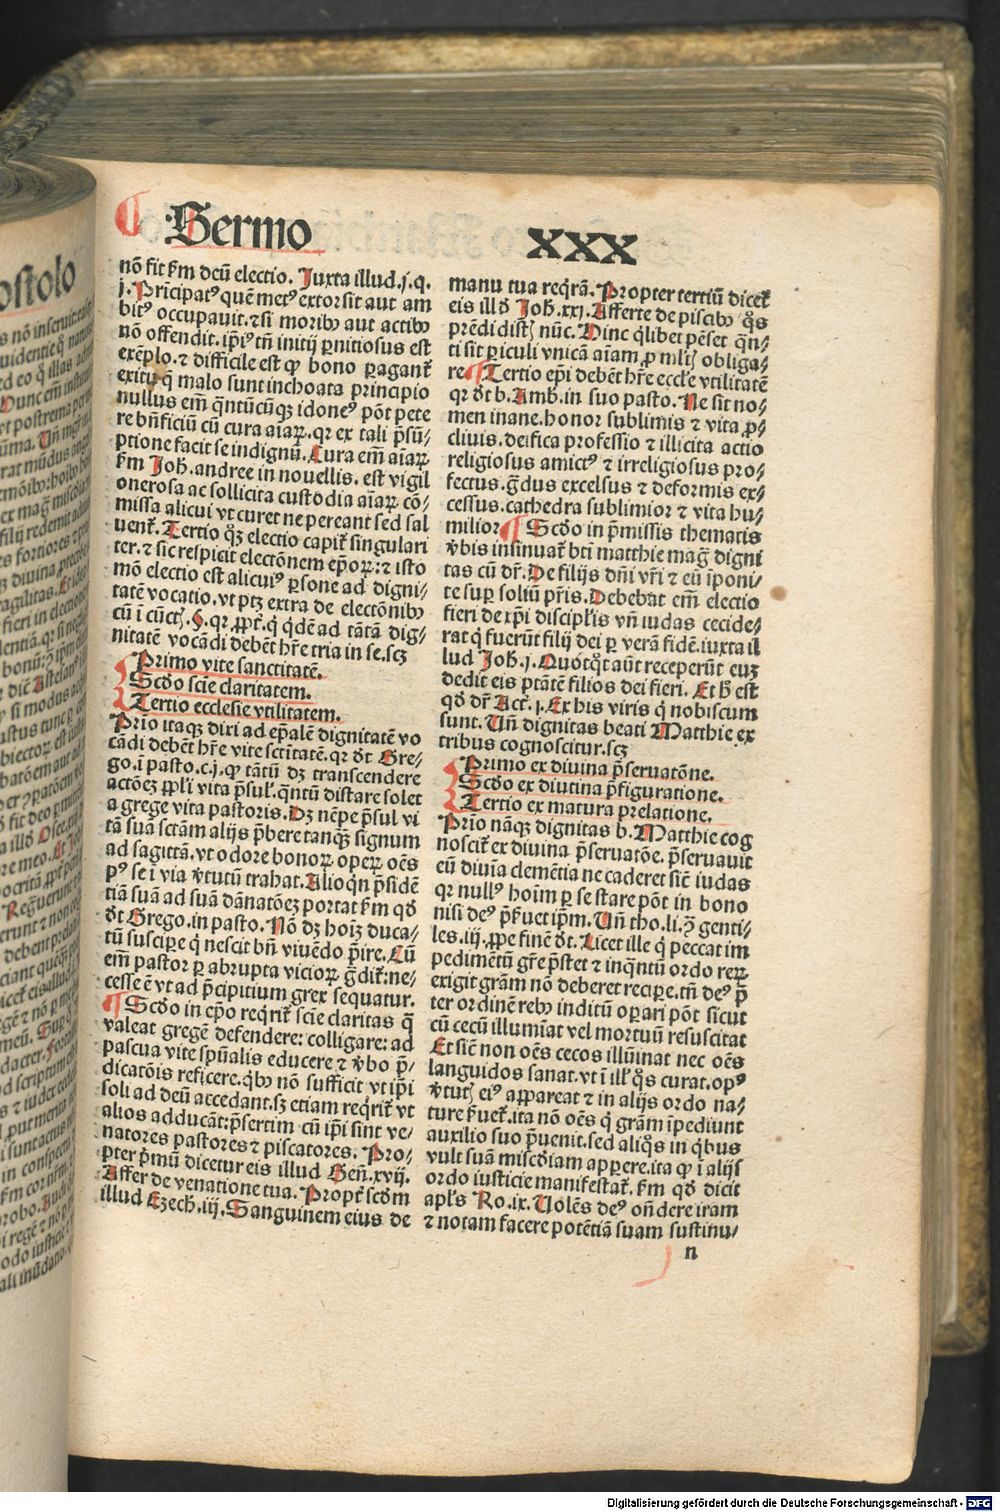 Sermo XXX
nō fit ẜm deū electio. Juxta illud.j.q.
j. Prīcipatꝰ quē metꝰ extorsit aut am
bitꝰ occupauit.⁊ si moribꝰ aut actibꝰ
nō offendit. ip̄iꝰ tñ initij ꝑnitiosus est
exēplo.⁊ difficile est ꝙ bono ꝑagant̄
exitu q̄ malo sunt inchoata principio
nullus em̄ qntūcūqꝫ idoneꝰ pōt pete
re bñficiū cū cura aīaꝝ.qꝛ ex tali p̄sū⸗
ptione facit se indignū. Cura em̄ aīaꝝ
ẜm Joh̄. andree in nouellis. est vigil
onerosa ac sollicita custodia aīaꝝ cō⸗
missa alicui vt curet ne pereant sed sal
uent̄. Tertio qꝫ electio capit̄ singulari
ter.⁊ sic respicit electōnem ep̄oꝝ:⁊ isto
mō electio est alicuiꝰ ꝑsone ad digni⸗
tatē vocatio. vt ptꝫ extra de electōnibꝰ
cū ī cūctꝭ. §. qꝛ ꝓpt̄. q̄ qdē ad tātā dig⸗
nitatē vocādi debēt hr̄e tria in se. scꝫ
Primo vite sanctitatē.
Scd̄o scīe claritatem.
Tertio ecclesie vtilitatem.
Prīo itaqꝫ dixi ad ep̄alē dignitatē vo
cādi debēt hr̄e vite sctītatē.qꝛ dt̄ Gre⸗
go. ī pasto.c.j.ꝙ tātū dꝫ transcendere
actōeꝫ ppli vita p̄sul̄.qntū distare solet
a grege vita pastoris. Dꝫ nēpe p̄sul vi
tā suā sctām alijs p̄bere tanqꝫ signum
ad sagittā. vt odore bonoꝝ operꝝ oēs
pꝰ se ī via v̓tutū trahat. Alioqn p̄sidē
tiā suā ad suā dānatōeꝫ portat ẜm qd̄
dt̄ Grego. in pasto. Nō dꝫ hoīꝫ duca⸗
tū suscipe q̄ nescit bñ viuēdo p̄ire. Cū
em̄ pastor ꝑ abrupta vicioꝝ ḡdit̄:ne⸗
cesse ē vt ad p̄cipitium grex sequatur.
Scd̄o in ep̄o reqrit̄ scīe claritas q̄
valeat gregē defendere: colligare: ad
pascua vite spūalis educere ⁊ v̓bo p̄⸗
dicatōis reficere.qbꝰ nō sufficit vt ip̄i
soli ad deū accedant.sꝫ etiam reqrit̄ vt
alios adducāt:p̄sertim cū ip̄i sint ve⸗
natores pastores ⁊ piscatores. Pro⸗
pter p̄mū dicetur eis illud Geñ.xvij.
Affer de venatione tua. Propt̄ scd̄m
illud Ezech.iij. Sanguinem eius de
manu tua reqrā. Propter tertiū dicet̄
eis illd̄ Joh̄.xxj. Afferte de piscibꝰ qs
prēdidistꝭ nūc. Hinc qlibet pēset qn⸗
ti sit ꝑiculi vnicā aīam ꝓ mltꝭ obliga⸗
re. Tertio ep̄i debēt hr̄e eccl̄e vtilitatē
qꝛ dt̄ b. Amb. in suo pasto. Ne sit no⸗
men inane. honor sublimis ⁊ vita ꝓ⸗
cliuis. deifica professio ⁊ illicita actio
religiosus amictꝰ ⁊ irreligiosus pro⸗
fectus. ḡdus excelsus ⁊ deformis ex⸗
cessus. cathedra sublimior ⁊ vita hu⸗
milior. Scd̄o in p̄missis thematis
v̓bis insinuat̄ bti matthie maḡ digni
tas cū dr̄. De filijs dñi vr̄i ⁊ eū īponi⸗
te suꝑ soliū pr̄is. Debebat em̄ electio
fieri de xp̄i discipl̄is vñ iudas cecide⸗
rat q̄ fuerūt filij dei ꝑ verā fidē. iuxta il
lud Joh̄.j. Quotqt aūt receperūt euꝫ
dedit eis ptātē filios dei fieri. Et h̄ est
qd̄ dr̄ Act̄.j. Ex his viris q̄ nobiscum
sunt. Vñ dignitas beati Matthie ex
tribus cognoscitur.scꝫ
Primo ex diuina p̄seruatōne.
Scd̄o ex diutina p̄figuratione.
Tertio ex matura prelatione.
Prīo nāqꝫ dignitas b. Matthie cog
noscit̄ ex diuina p̄seruatōe. p̄seruauit
eū diuīa clemētia ne caderet sicē iudas
qꝛ nullꝰ hoīm ꝑ se stare pōt in bono
nisi deꝰ p̄ẜuet ip̄m. Vñ tho. li. ꝯ genti⸗
les. iij. ꝓpe finē dt̄. Licet ille q̄ peccat im
pedimētū gr̄e p̄stet ⁊ inqntū ordo reꝝ
exigit grām nō deberet recipe. tñ deꝰ p̄
ter ordinē rebꝰ inditū oꝑari pōt sicut
cū cecū illumīat vel mortuū resuscitat
Et sicē non oēs cecos illūinat nec oēs
languidos sanat. vt ī ill̓ qs curat. opꝰ
v̓tutꝭ eiꝰ appareat ⁊ in alijs ordo na⸗
ture ẜuet̄. ita nō oēs q̄ grām īpediunt
auxilio suo p̄uenit. sed aliqs in qbus
vult suā miscd̄iam apꝑere. ita ꝙ ī alijs
ordo iusticie manifestat̄. ẜm qd̄ dicit
apl̄s Ro. ix. Volēs deꝰ oñdere iram
⁊ notam facere potētiā suam sustinu⸗
n
Digitalisierung gefördert durch die Deutsche Forschungsgemeinschaft - DFG